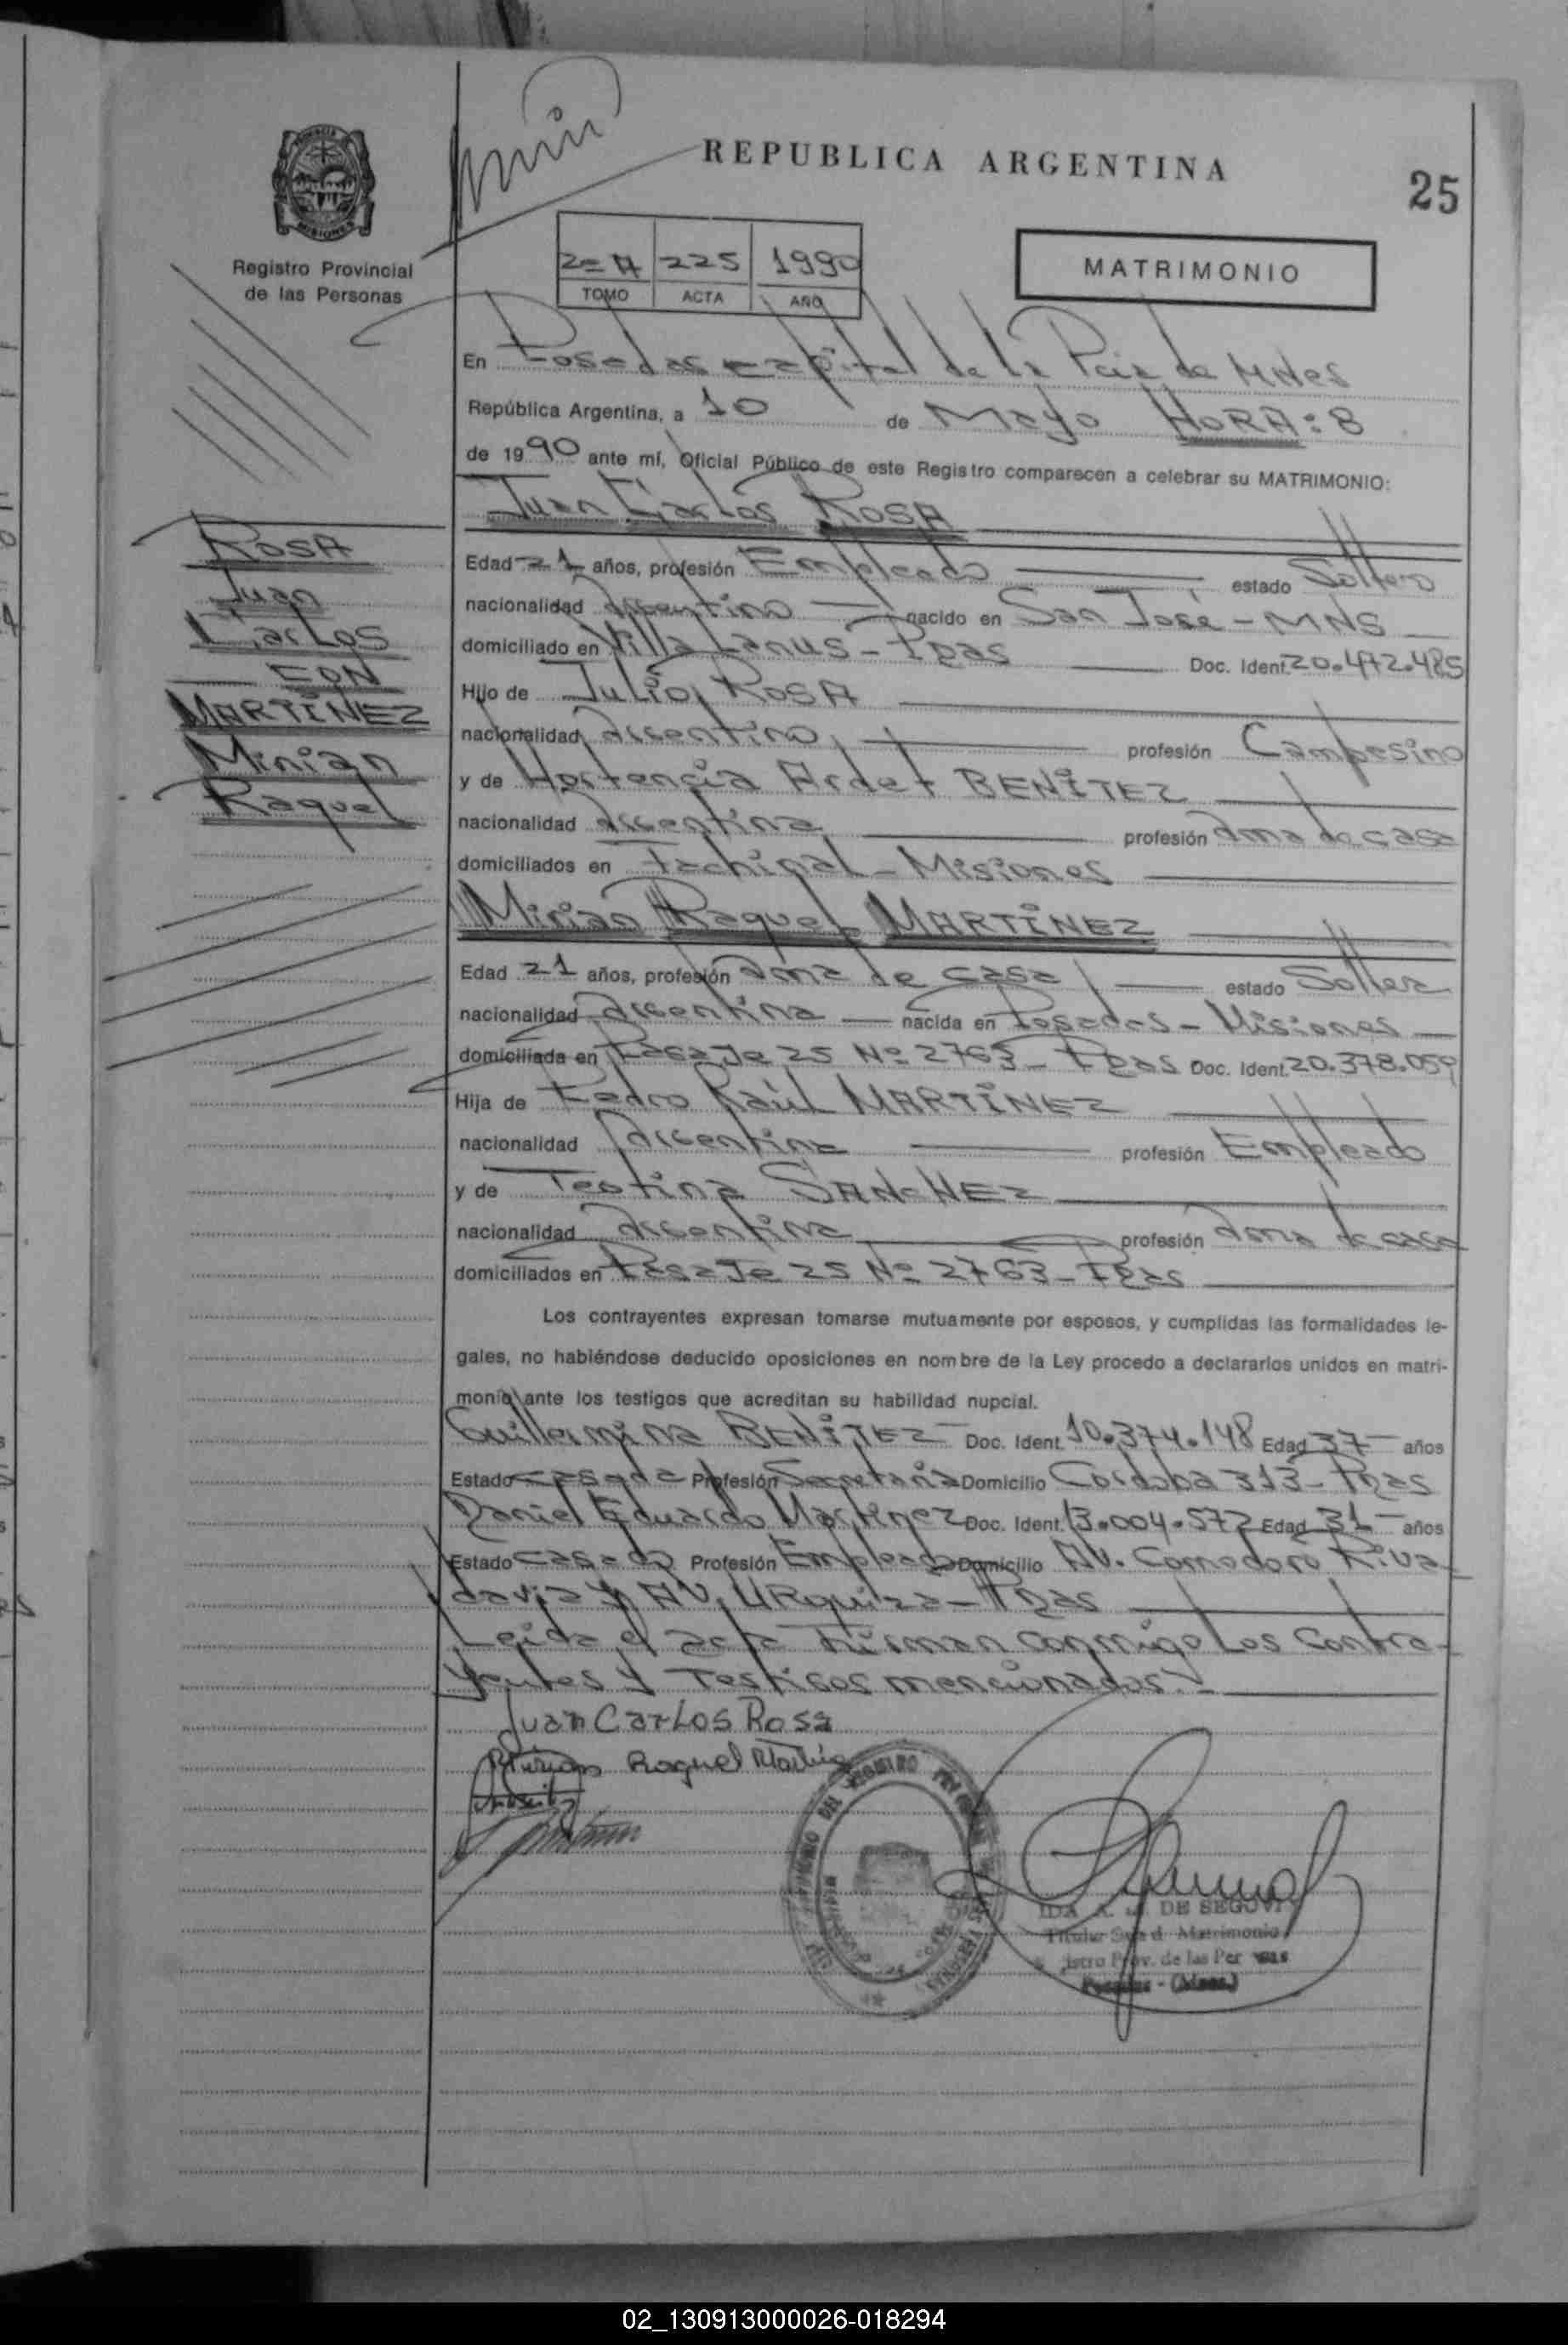 REPUBLICA ARGENTINA
25
Registro Provincial
de las Personas
2= A 225 1990
TOMO ACTA AÑO
MATRIMONIO
En Posadas capital de la Pcia de MNes
República Argentina, a 10 de Mayo HORA: 8
de 1990 ante mí, Oficial Público de este Registro comparecen a celebrar su MATRIMONIO:
Juan Carlos ROSA
ROSA
Juan
Carlos
CON
MARTINEZ
Mirian
Raquel
Edad 21 años, profesión Empleado estado Soltero
nacionalidad Argentino nacido en San José - MNS
domiciliado en Villa Lanus - Pdas Doc. Ident. 20.472.485
Hijo de Julio ROSA
nacionalidad Argentino profesión Campesino
y de Hortencia Ardet BENITEZ
nacionalidad Argentina profesión Ama de casa
domiciliados en Pachipal - Misiones
Mirian Raquel MARTINEZ
Edad 21 años, profesión Ama de casa estado Soltera
nacionalidad Argentina nacida en Posadas - Misiones
domiciliada en Pasaje 25 Nº 2763 - Pdas Doc. Ident. 20.378.059
Hija de Pedro Raúl MARTINEZ
nacionalidad Argentina profesión Empleado
y de Teotina SANCHEZ
nacionalidad Argentina profesión Ama de casa
domiciliados en Pasaje 25 Nº 2763 - Pdas
Los contrayentes expresan tomarse mutuamente por esposos, y cumplidas las formalidades le-
gales, no habiéndose deducido oposiciones en nombre de la Ley procedo a declararlos unidos en matri-
monio ante los testigos que acreditan su habilidad nupcial.
Guillermina BENITEZ Doc. Ident. 10.374.148 Edad 37 años
Estado casada Profesión Secretaria Domicilio Cordoba 313 - Pdas
Daniel Eduardo Martinez Doc. Ident. 13.004.572 Edad 31 años
Estado casado Profesión Empleado Domicilio AV. Comodoro Riva-
davia y AV. URquiza - Pdas
Leida el acta firman conmigo los contra-
yentes y testigos mencionados.-
Juan Carlos Rosa
Mirian Raquel Martinez
IDA A. DE SEGOVIA
Titular Matrimonio
Prov. de las Per
Posadas - (Mnes.)
02_130913000026-018294